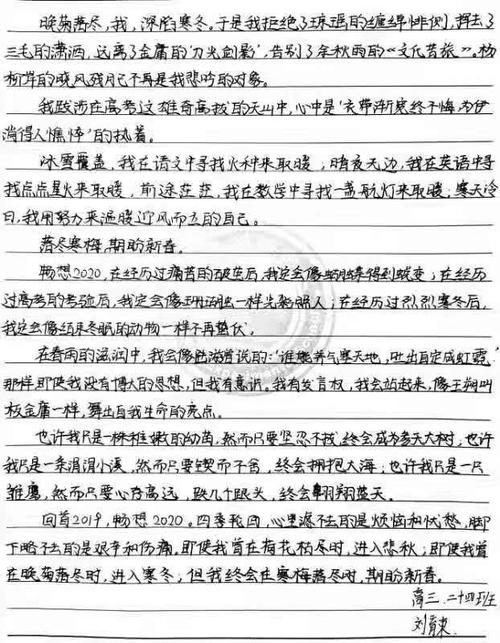 晚菊落尽,我,深陷寒冬。于是我拒绝了琼瑶的缠绵悱恻,挥去了
三毛的潇洒,远离了金庸的‘刀光剑影’,告别了余秋雨的《文化苦旅》。杨
柳岸的晓风残月已不再是我悲吟的对象。
我跋涉在高考这雄奇高拔的天山中,心中是‘衣带渐宽终不悔为伊
消得人憔悴’的执着。
冰雪覆盖,我在语文中寻找火种来取暖;暗夜无边,我在英语中寻
找点点星火来取暖,前途茫茫,我在数学中寻找一盏航灯来取暖;寒天冷
日,我用努力来温暖迎风而立的自己。
落尽寒梅,期盼新春。
畅想2020,在经历过痛苦的破茧后,我定会像蝴蝶得到蜕变;在经历
过高考的考验后,我定会像珊瑚虫一样光彩照人;在经历过烈烈寒冬后,
我定会像结束冬眠的动物一样不再蛰伏。
在春雨的滋润中,我会像 说的:‘谁能养气塞天地,吐出自定成虹霓.’
那样,即使我没有博大的思想,但我有意识,我有发言权,我会站起来,像王朔叫
板金庸一样,舞出自我生命的亮点。
也许我只是一株稚嫩的幼苗,然而只要坚忍不拔,终会成为参天大树;也许
我只是一条涓涓小溪,然而只要锲而不舍,终会拥抱大海;也许我只是一只
雏鹰,然而只要心存高远,跌几个跟头,终会翱翔蓝天。
回首2019,畅想2020。四季轮回,心里源不去的是烦恼和忧愁,脚
下略不去的是艰辛和伤痛。即使我曾在荷花枯尽时,进入悲秋;即使我曾
在晚菊落尽时,进入寒冬;但我终会在寒梅落尽时,期盼新春。
高三.二十四班
刘